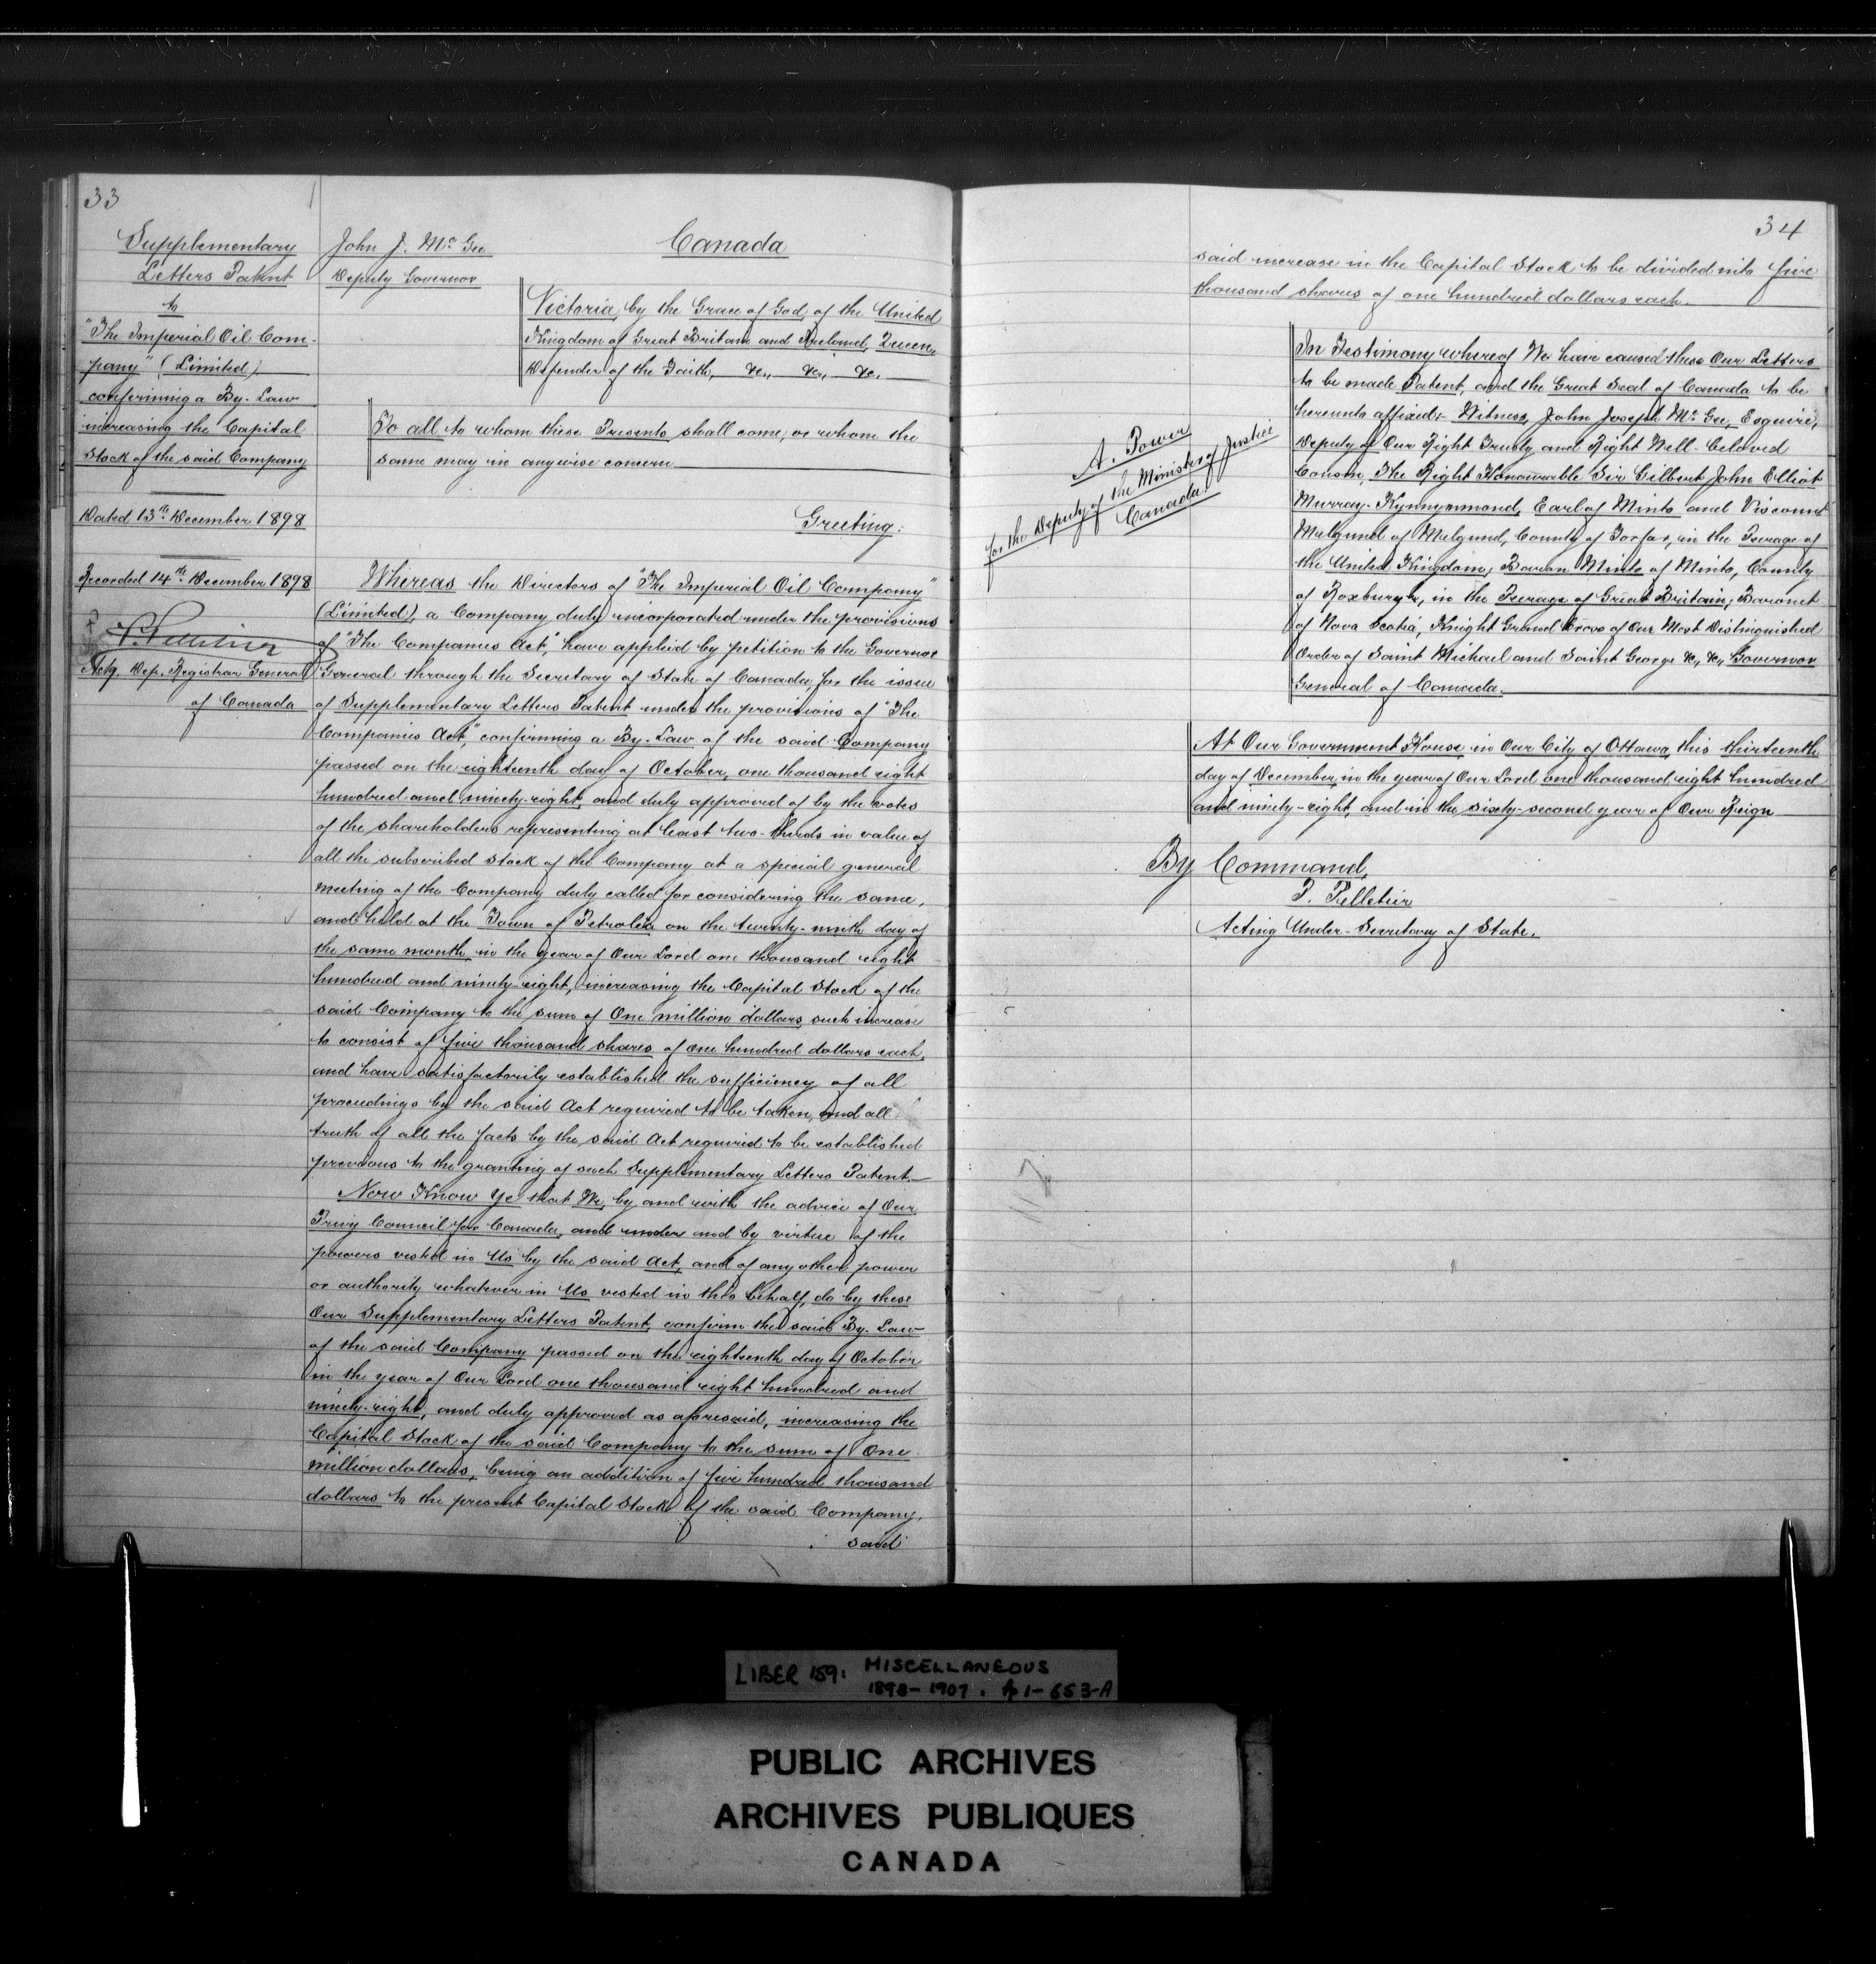 33
Supplementary
Letters Patent
to
"The Imperial Oil Com-
pany" (Limited)
confirming a By-Law
increasing the Capital
Stock of the said Company
Dated 13th December 1898
Recorded 14th December 1898
P. Pelletier
Actg. Dep. Registrar General
of Canada
John J. McGee
Deputy Governor
Canada
Victoria, by the Grace of God, of the United
Kingdom of Great Britain and Ireland, Queen,
Defender of the Faith, &c., &c., &c.
To all to whom these Presents shall come, or whom the
same may in anywise concern
Greeting:
Whereas the Directors of "The Imperial Oil Company"
(Limited), a Company duly incorporated under the provisions
of "The Companies Act", have applied by petition to the Governor
General through the Secretary of State of Canada, for the issue
of Supplementary Letters Patent under the provisions of "The
Companies Act", confirming a By-Law of the said Company
passed on the eighteenth day of October, one thousand eight
hundred and ninety-eight, and duly approved of by the votes
of the shareholders representing at least two-thirds in value of
all the subscribed stock of the Company at a special general
meeting of the Company duly called for considering the same,
and held at the Town of Petrolea on the twenty-ninth day of
the same month, in the year of Our Lord one thousand eight
hundred and ninety-eight, increasing the Capital Stock of the
said Company to the sum of One million dollars, such increase
to consist of five thousand shares of one hundred dollars each,
and have satisfactorily established the sufficiency of all
proceedings by the said Act required to be taken, and all
truth of all the facts by the said Act required to be established
previous to the granting of such Supplementary Letters Patent.
Now Know Ye that We, by and with the advice of Our
Privy Council for Canada, and under and by virtue of the
powers vested in Us by the said Act, and of any other power
or authority whatever in Us vested in this behalf, do by these
Our Supplementary Letters Patent, confirm the said By-Law
of the said Company passed on the eighteenth day of October
in the year of Our Lord one thousand eight hundred and
ninety-eight, and duly approved as aforesaid, increasing the
Capital Stock of the said Company to the sum of One
million dollars, being an addition of five hundred thousand
dollars to the present Capital Stock of the said Company,
said
34
said increase in the Capital Stock to be divided into five
thousand shares of one hundred dollars each.
A. Power
for the Deputy of the Minister of Justice
Canada
In Testimony whereof We have caused these Our Letters
to be made Patent, and the Great Seal of Canada to be
hereunto affixed:- Witness, John Joseph McGee, Esquire,
Deputy of Our Right Trusty and Right Well-Beloved
Cousin, The Right Honourable Sir Gilbert John Elliot
Murray-Kynnynmond, Earl of Minto and Viscount
Melgund of Melgund, County of Forfar, in the Peerage of
the United Kingdom, Baron Minto of Minto, County
of Roxburgh, in the Peerage of Great Britain, Baronet
of Nova Scotia, Knight Grand Cross of Our Most Distinguished
Order of Saint Michael and Saint George &c, &c, Governor
General of Canada.
At Our Government House, in Our City of Ottawa, this thirteenth
day of December, in the year of Our Lord one thousand eight hundred
and ninety-eight, and in the sixty-second year of Our Reign
By Command,
P. Pelletier
Acting Under-Secretary of State.
LIBER 159: MISCELLANEOUS
1898-1907. p 1-653-A
PUBLIC ARCHIVES
ARCHIVES PUBLIQUES
CANADA